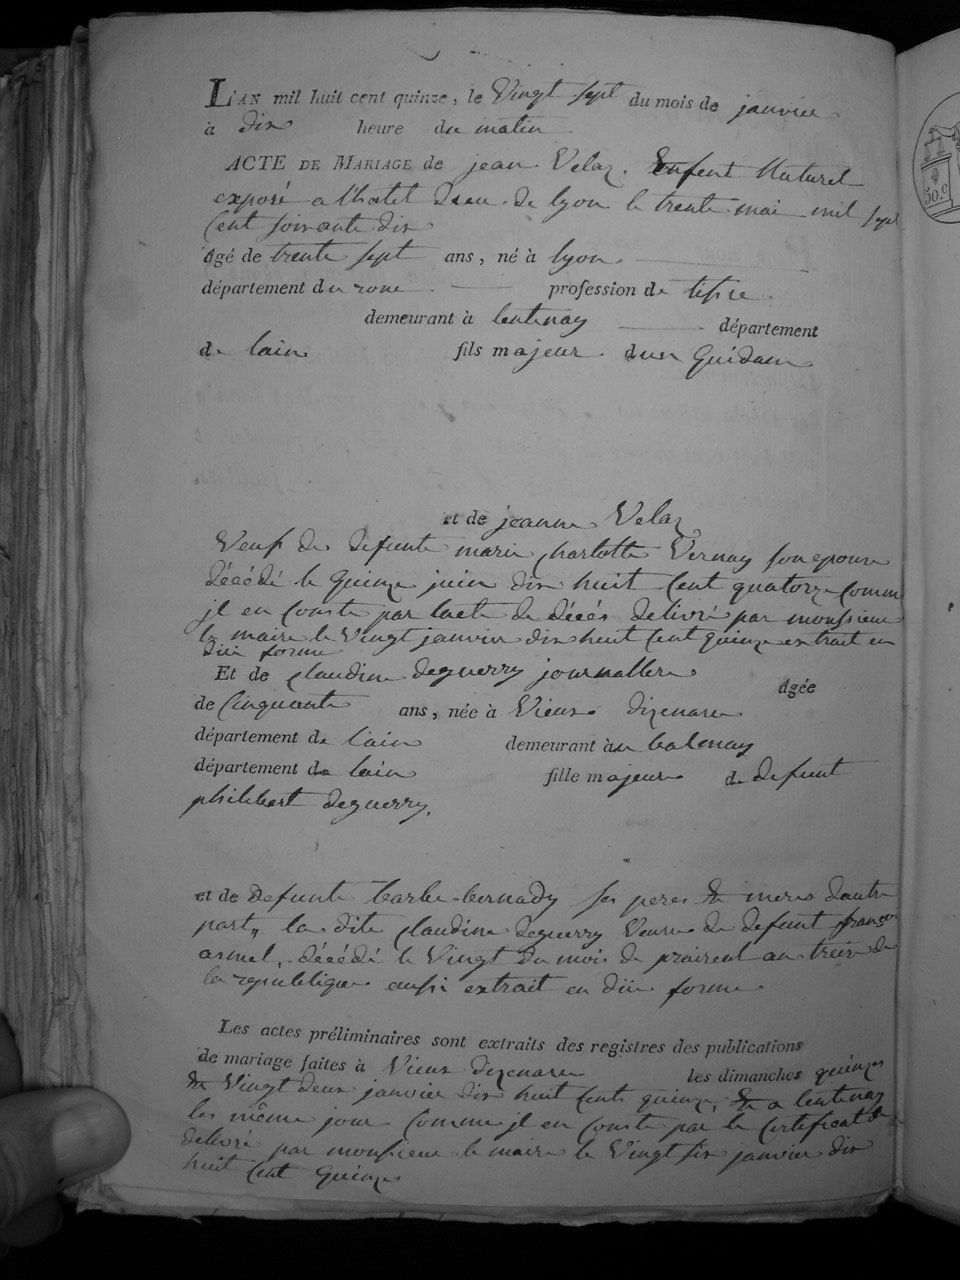 L'AN mil huit cent quinze, le Vingt sept du mois de janvier
à dix heure du matin
ACTE DE MARIAGE de jean Velaz. Enfent Naturel
exposé a l'hotel dieu de lyon le trente mai mil sept
Cent soixante dix
âgé de trente sept ans, né à lyon
département du rone profession de tissie
demeurant à lentenay département
de lain fils majeur dun Quidam
et de jeanne Velaz
Veuf de defunte marie charlotte Vernay son epouse
décédé le quinze juin dix huit Cent quatorze comme
jl en Conste par lacte de décés delivré par monssieur
le maire le Vingt janvier dix huit Cent quinze extrait en
düe forme
Et de claudine deguerry journallere âgée
de Cinquante ans, née à Vieux dizenare
département de l'ain demeurant au balmay
département de lain fille majeure de defunt
philibert deguerry.
et de defunte barbe bernady ses peres Et meres dautre
part, la dite claudine deguerry Veuve de defunt françois
armel, décédé le Vingt du mois de praireal an treize de
la republique aussi extrait en düe forme
Les actes préliminaires sont extraits des registres des publications
de mariage faites à Vieux dizenare les dimanches quinze
Et Vingt deux janvier dix huit Cent quinze, Et a lentenay
les même jour Comme jl en Conste par le Certificat
delivré par monsieur le maire le Vingt six janvier dix
huit Cent Quinze
50.c